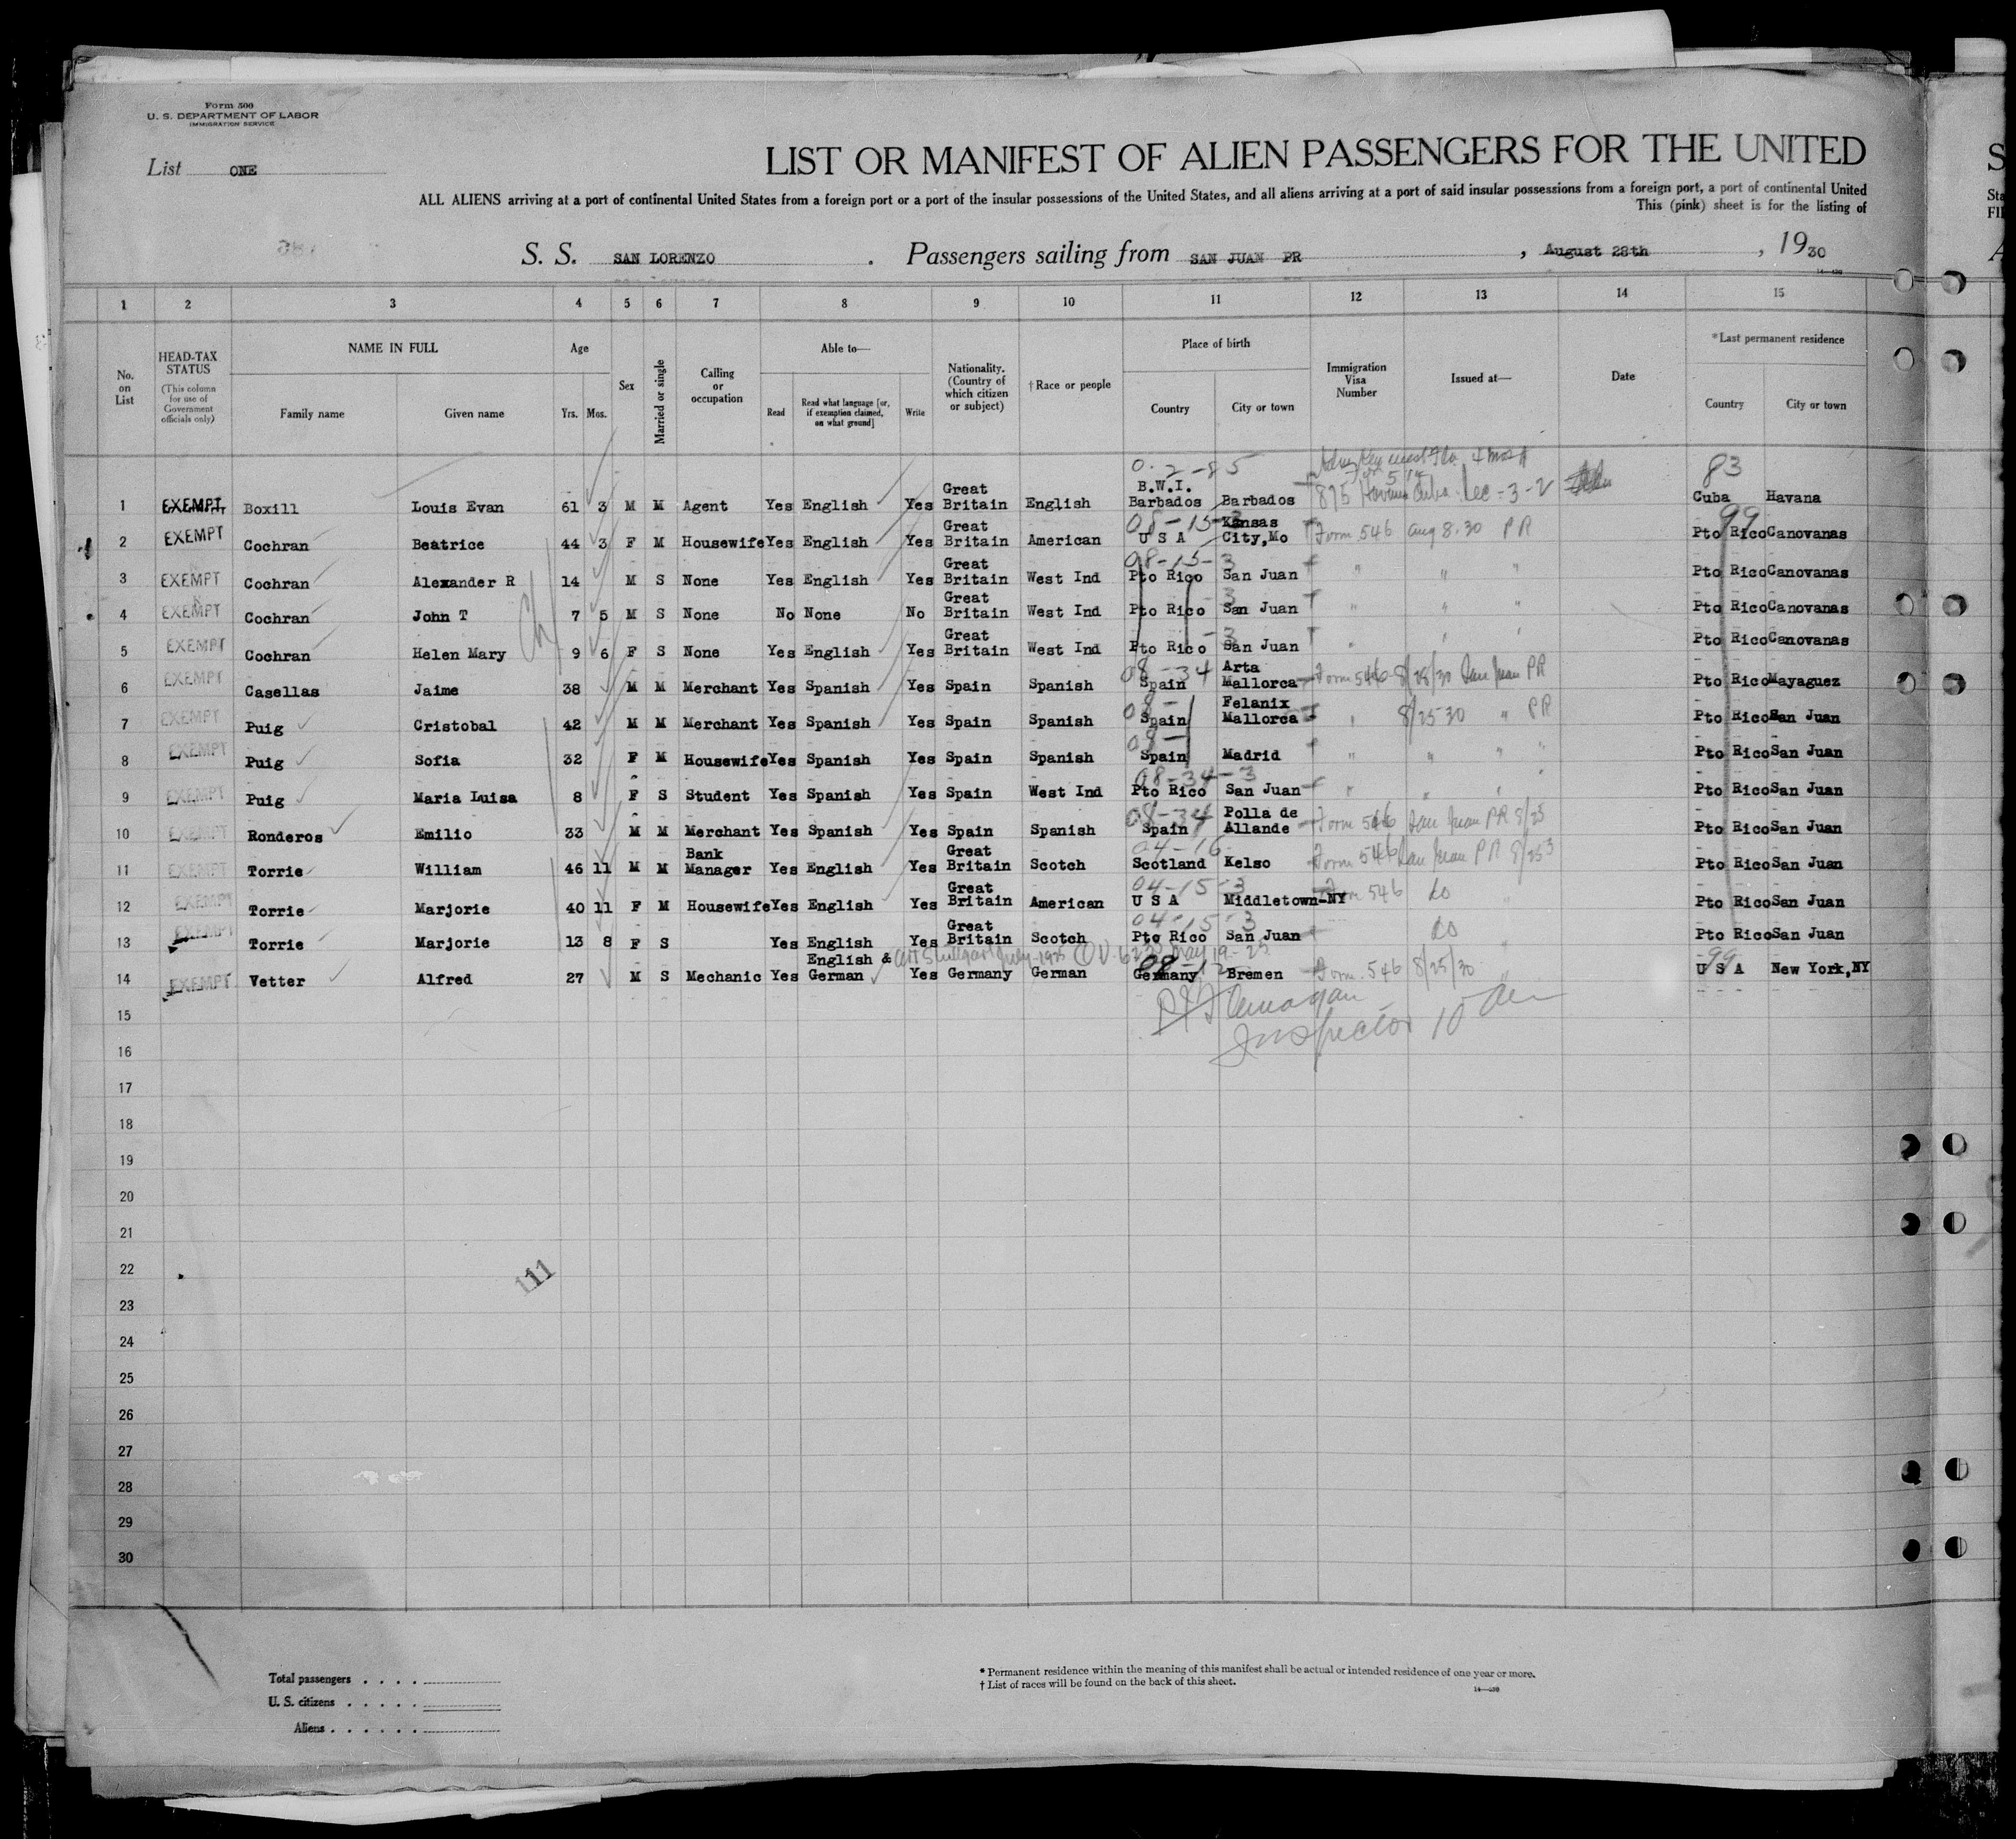 Form 500
U. S. DEPARTMENT OF LABOR
IMMIGRATION SERVICE
List ONE
LIST OR MANIFEST OF ALIEN PASSENGERS FOR THE UNITED
ALL ALIENS arriving at a port of continental United States from a foreign port or a port of the insular possessions of the United States, and all aliens arriving at a port of said insular possessions from a foreign port, a port of continental United
This (pink) sheet is for the listing of
S. S. SAN LORENZO . Passengers sailing from SAN JUAN PR , August 28th , 1930
1 2 3 4 5 6 7 8 9 10 11 12 13 14 15
No. on List
HEAD-TAX STATUS
(This column for use of Government officials only)
NAME IN FULL
Family name Given name
Age
Yrs. Mos.
Sex
Married or single
Calling or occupation
Able to—
Read
Read what language [or, if exemption claimed, on what ground]
Write
Nationality. (Country of which citizen or subject)
† Race or people
Place of birth
Country City or town
Immigration Visa Number
Issued at—
Date
* Last permanent residence
Country City or town
1 EXEMPT Boxill Louis Evan 61 3 M M Agent Yes English Yes Great Britain English B.W.I. Barbados Barbados 895 Havana Cuba 83 Cuba Havana
2 EXEMPT Cochran Beatrice 44 3 F M Housewife Yes English Yes Great Britain American 08-15-3 U S A Kansas City,Mo Form 546 Aug 8.30 PR 99 Pto Rico Canovanas
3 EXEMPT Cochran Alexander R 14 M S None Yes English Yes Great Britain West Ind 08-15-3 Pto Rico San Juan " " " Pto Rico Canovanas
4 EXEMPT Cochran John T 7 5 M S None No None No Great Britain West Ind Pto Rico San Juan " " " Pto Rico Canovanas
5 EXEMPT Cochran Helen Mary 9 6 F S None Yes English Yes Great Britain West Ind Pto Rico San Juan " " " Pto Rico Canovanas
6 EXEMPT Casellas Jaime 38 M M Merchant Yes Spanish Yes Spain Spanish 08-34 Spain Arta Mallorca Form 546 8/25/30 San Juan PR Pto Rico Mayaguez
7 EXEMPT Puig Cristobal 42 M M Merchant Yes Spanish Yes Spain Spanish Spain Felanix Mallorca " 8/25 30 " PR Pto Rico San Juan
8 EXEMPT Puig Sofia 32 F M Housewife Yes Spanish Yes Spain Spanish Spain Madrid " " " " Pto Rico San Juan
9 EXEMPT Puig Maria Luisa 8 F S Student Yes Spanish Yes Spain West Ind 08-34-3 Pto Rico San Juan " " " Pto Rico San Juan
10 EXEMPT Ronderos Emilio 33 M M Merchant Yes Spanish Yes Spain Spanish 08-34 Spain Polla de Allande Form 546 San Juan PR 8/25 Pto Rico San Juan
11 EXEMPT Torrie William 46 11 M M Bank Manager Yes English Yes Great Britain Scotch 04-16 Scotland Kelso Form 546 San Juan PR 8/25 Pto Rico San Juan
12 EXEMPT Torrie Marjorie 40 11 F M Housewife Yes English Yes Great Britain American 04-15-3 U S A Middletown-NY Form 546 do Pto Rico San Juan
13 EXEMPT Torrie Marjorie 13 8 F S Yes English Yes Great Britain Scotch 04-15-3 Pto Rico San Juan do Pto Rico San Juan
14 EXEMPT Vetter Alfred 27 M S Mechanic Yes English & German Yes Germany German 08-12 Germany Bremen Form 546 8/25/30 99 U S A New York,NY
15
Inspector
16
17
18
19
20
21
22
111
23
24
25
26
27
28
29
30
Total passengers
U. S. citizens
Aliens
* Permanent residence within the meaning of this manifest shall be actual or intended residence of one year or more.
† List of races will be found on the back of this sheet.